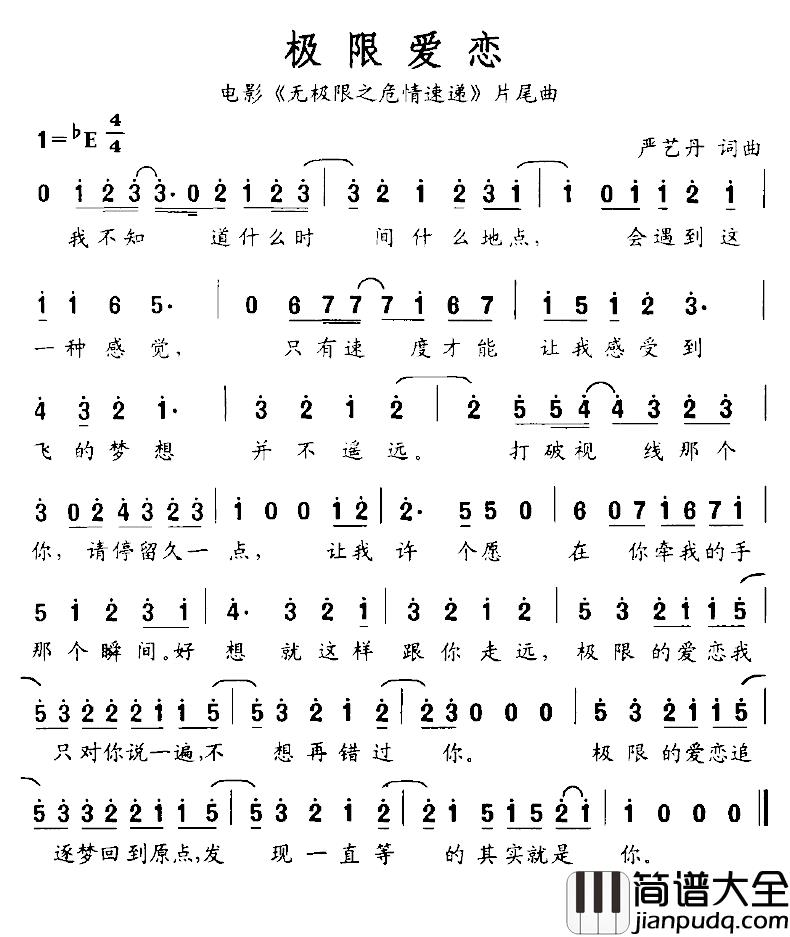 极限爱恋
电影《无极限之危情速递》片尾曲
1=♭E 4/4
严艺丹 词曲
0 1 2 3 3· 0 2 1 2 3 | 3 2 1 2 3 1 | 1 0 1 1 2 1 |
我不知 道什么时 间什么地点, 会遇到这
1 1 6 5· | 0 6 7 7 7 1 6 7 | 1 5 1 2 3· |
一种感觉, 只有速 度才能 让我感受到
4 3 2 1· | 3 2 1 2 | 2 5 5 4 4 3 2 3 |
飞的梦想 并不遥远。 打破视 线那个
3 0 2 4 3 2 3 | 1 0 0 1 2 | 2· 5 5 0 | 6 0 7 1 6 7 1 |
你, 请停留久一点, 让我许 个愿 在你牵我的手
5 1 2 3 1 | 4· 3 2 1 | 3 2 1 2 | 5 3 2 1 1 5 |
那个瞬间。好 想就这样 跟你走远, 极限的爱恋我
5 3 2 2 2 1 1 5 | 5 3 2 1 2 | 2 3 0 0 0 | 5 3 2 1 1 5 |
只对你说一遍,不 想再错过 你。 极限的爱恋追
5 3 3 2 2 1 1 5 | 5 3 2 1 2 | 2 1 5 1 5 2 1 | 1 0 0 0 ‖
逐梦回到原点,发 现一直等 的其实就是 你。
简谱大全
jianpudq.com